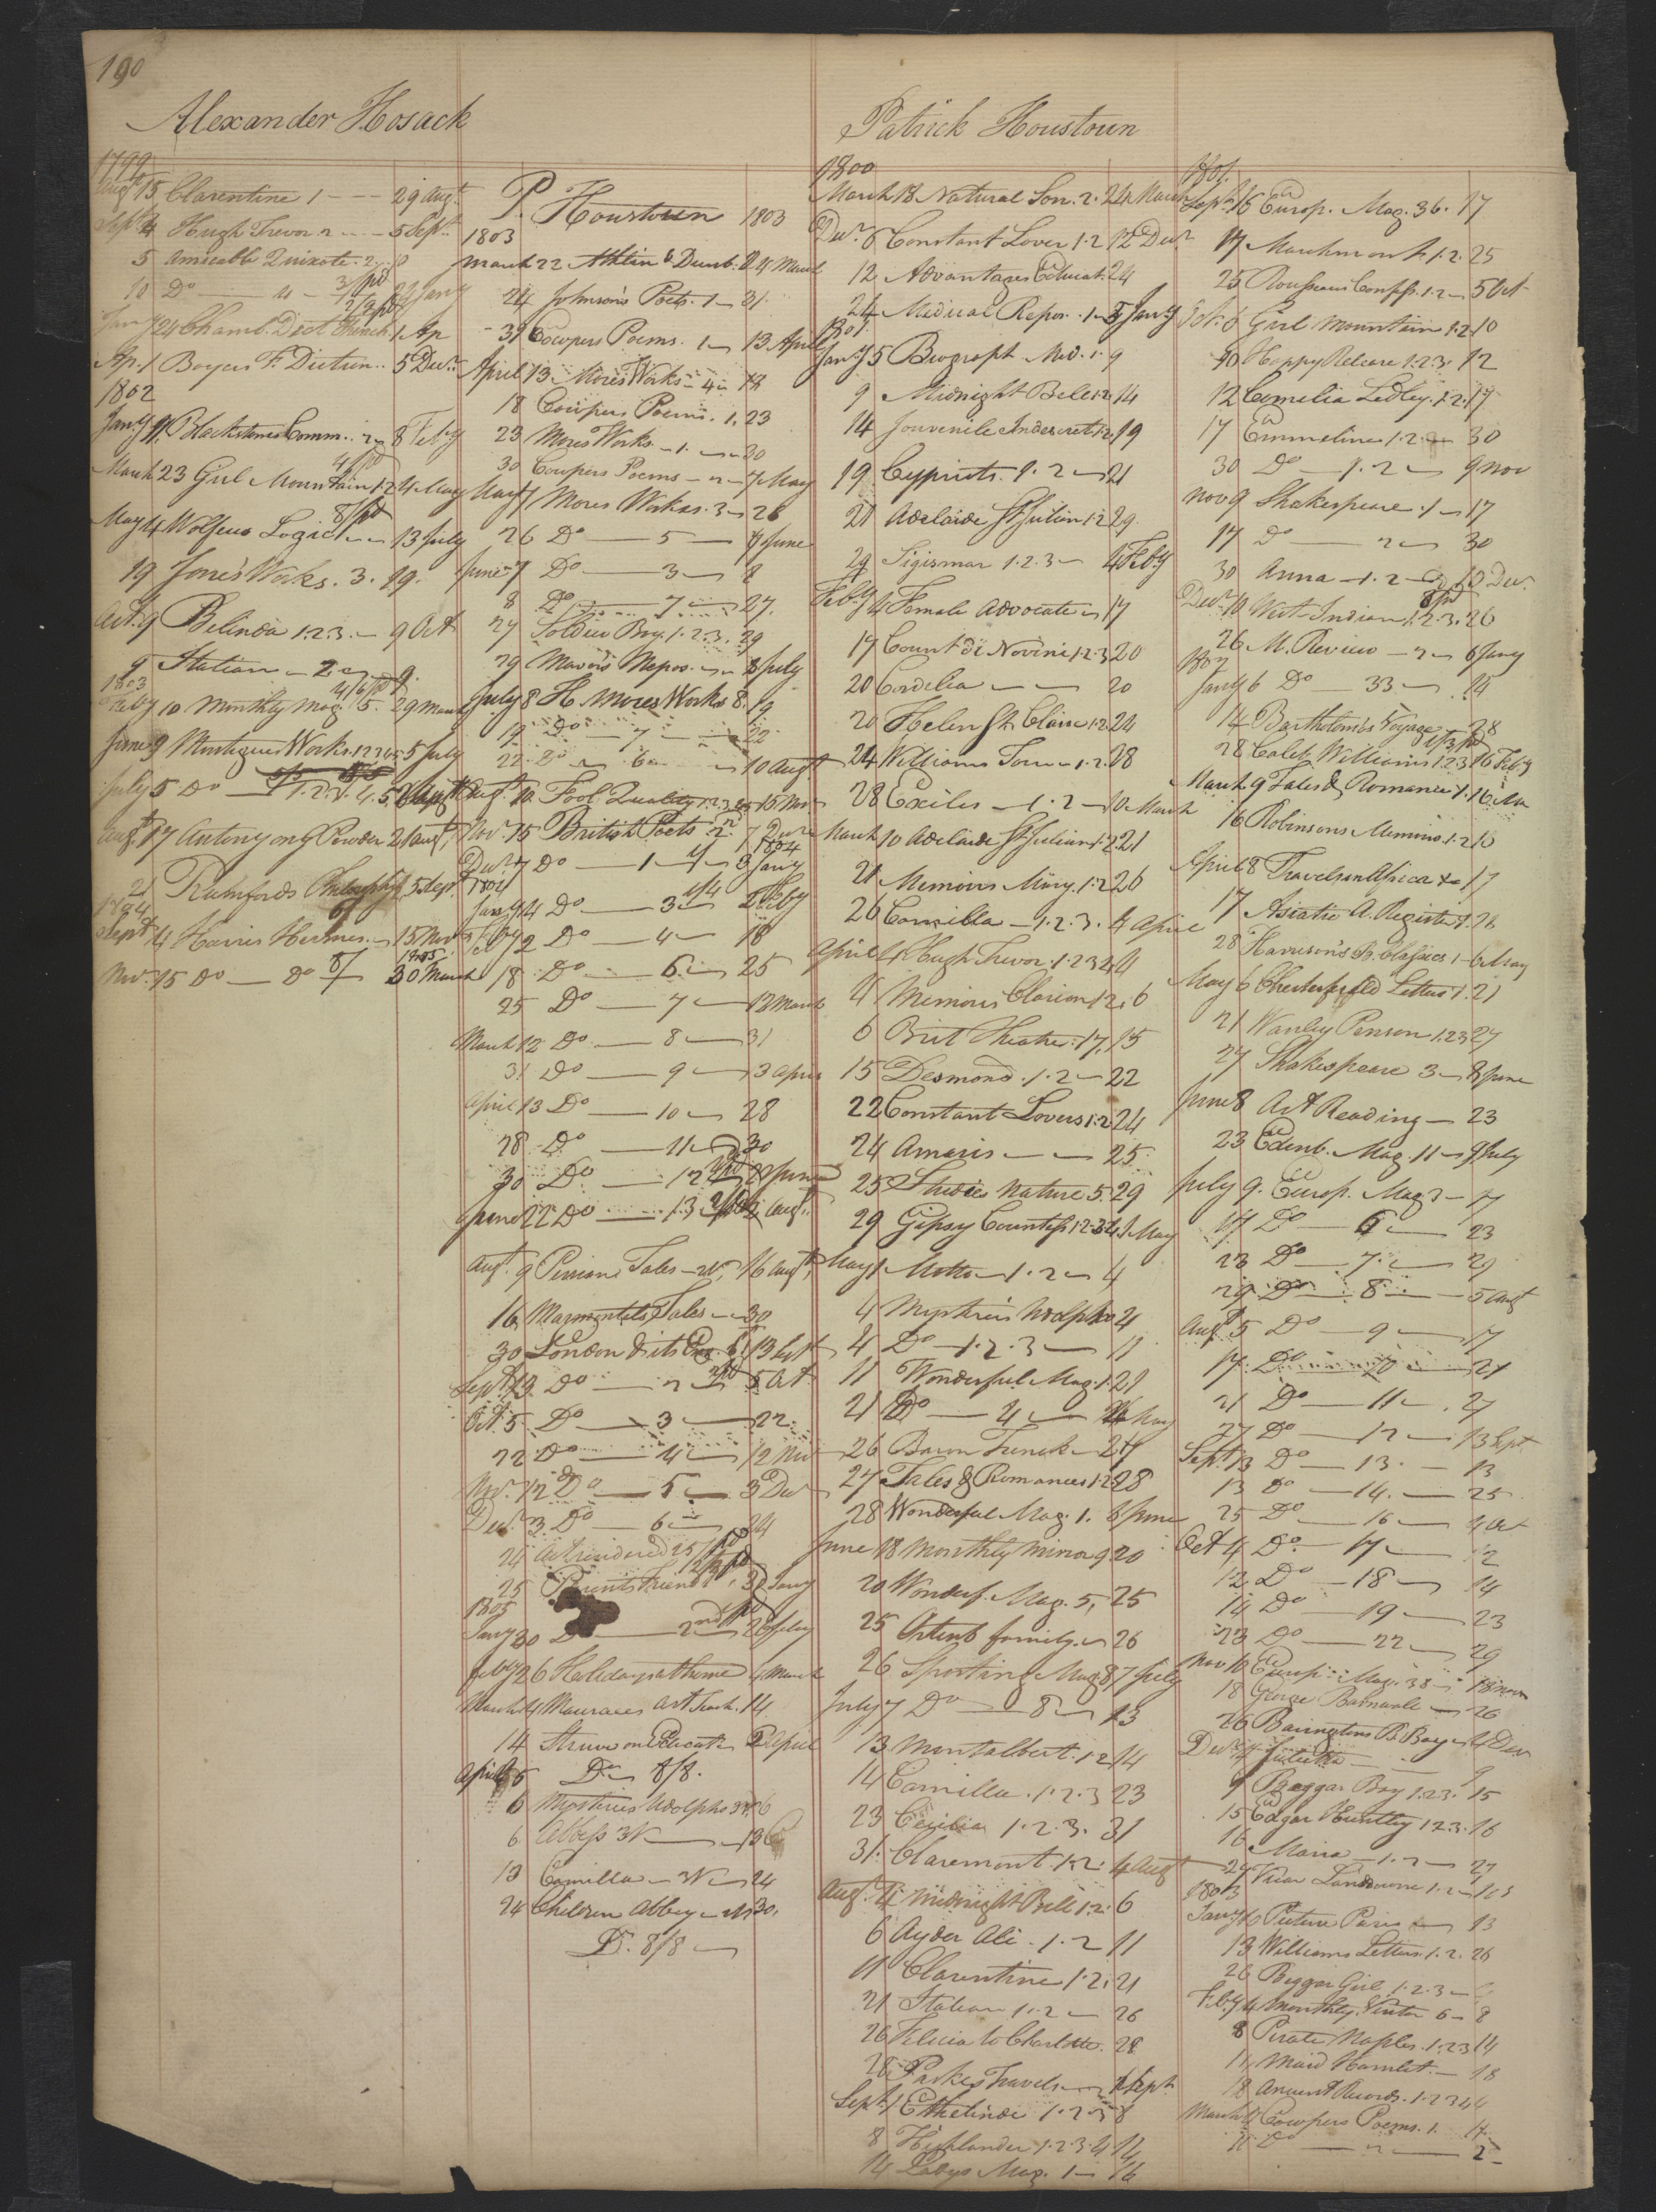 190
Alexander Hosack
1799
Augt 15 Clarentine 1 - - - 29 Augt.
Sept. 4 Hugh Trevor 2 - - - 5 Sept.
5 Amicable Quixote. 2. 10
10 Do — 4 —
Jany 24 Chamb. Dict. French. 1 Ap
Ap. 1 Boyers F. Diction.. 5 Decr.
1802
Jany 9 Blackstones Comm.. 2 8 Feby
March 23 Girl Mountain 1.2 4 May
May 4 Wolfius Logic — 13 July
19 Jones Works. 3. 19.
Oct. 9 Belinda 1.2.3. — 9 Oct
9 Italian — 2 — 9.
1803
Feby 10 Monthly Mag. 5. 29 March
June 9 Works. 5 July
July 5 Do — 1.2.3.4.5.
Augt. 17 Antimony Powder 21 Augt.
21 Rumfords Philosophy, 5 Sept.
1804
Sept. 4 Harris Hermes. — 15 Novr
1805
Nov. 15 Do — Do 8/ 30 March
P. Houstoun 1803
1803
March 22 Athlin & Dunb. 24 March
24 Johnson's Poets. 1 — 31.
31 Cowpers Poems. 1 — 13 April
April 13 Mores Works — 4 — 18
18 Cowpers Poems. 1. 23
23 Mores Works — 1. — 30
30 Cowpers Poems — 2 — 7 May
May 7 Mores Works. 3 — 26
26 Do — 5 — 7 June
June 7 Do — 3 — 8
8 Do — 7 — 27.
27 Soldier Boy 1.2.3. 29
29 Mavors Repos. — 8 July
July 8 H. Mores Works 8. 19
19 Do — 7 — 22
22 Do — 6 — 10 Augt
Augt. 10 Fool Quality 1.2.3 15 Nov
Nov. 15 British Poets 2 7 Decr
1804
Decr. 7 Do — 1 — 3 Jany
1804
Jany 4 Do — 3 — 2 Feby
Feby 2 Do — 4 — 18
18 Do — 6 — 25
25 Do — 7 — 12 March
March 12 Do — 8 — 31
31 Do — 9 — 13 April
April 13 Do — 10 — 28
28 Do — 11 — 30
30 Do — 12 — June
June 22 Do — 13 Augt.
Augt. 9 Persian Tales — 16 Augt
16 Marmontels Tales — 30
30 London & its Env. 13 Sept
Sept. 13 Do — 2 — 5 Oct
Oct. 5 Do — 3 — 22.
22 Do — 4 — 12 Nov
Nov. 12 Do — 5 — 3 Decr
Decr. 3 Do — 6 — 24
24 Act rendered 25/ pd
25 Parents Friend 1, 30 Jany
1805
Jany 30 Do — 2nd 26 Feby
Feby 26 Holidays at home 4 March
March 4 14
14 Struve on Educatn 2 April
April 5 Dr. 8/8.
6 Mysteries Udolpho 6
6 Abbess 3V — 13
13 Camilla — 3V — 24
24 Children Abbey — 30.
Dr. 8/8 —
Patrick Houstoun
1800
March 18 Natural Son. 2. 24 March
Decr. 6 Constant Lover 1.2 12 Decr
12 Advantages Educat. 24
24 Medical Repos. 1 — 5 Jany
1801.
Jany 5 Biograph. Med. 1. 9
9 Midnight Bell 1.2 14
14 Jouvenile Indescret. 1.2 19
19 Cypriots. 1.2 — 21
21 Adelaide St. Julian 1.2 29.
29 Sigismar 1.2.3 — 4 Feby
Feby 4 Female Advocate — 17
17 Count di Novini 1.2.3 20
20 Cordelia — — 20
20 Helen St. Claire 1.2 24
24 Williams Tour — 1.2. 28
28 Exiles — 1.2 — 10 March
March 10 Adelaide St. Julian 1.2 21
21 Memoirs Mary. 1.2 26
26 Camilla — 1.2.3. 4 April
April 4 Hugh Trevor. 1.2.3.4 4
4 Memoirs Clarion 1.2. 6
6 Brit Theatre. 17. 15
15 Desmond. 1.2 — 22
22 Constant Lovers 1.2 24
24 Amaris — — 25
25 Studies Nature 5. 29
29 Gipsy Countess 1.2.3.4. 1 May
May 1 Motto — 1.2 — 4
4 Mysteries Udolpho 4
4 Do — 1.2.3 — 11
11 Wonderful Mag. 1. 21
21 Do — 4 — 26 May
26 Baron Trenck — 27
27 Tales & Romances 1.2 28
28 Wonderful Mag. 1. 8 June
June 18 Monthly Mirror 9 20
20 Wonderf. Mag. 5, 25
25 family. — 26
26 Sporting Mag 8 7 July
July 7 Do — 8 — 13
13 Montalbert. 1.2 14
14 Camilla. 1.2.3 23
23 Cecilia 1.2.3. 31
31. Claremont. 1.2. 4 Augt
Augt. 4 Midnight Bell 1.2. 6
6 Ayder Ali. 1.2 11
11 Clarentine 1.2. 21
21 Italian 1.2 — 26
26 Felicia to Charlotte. 28
28 Parkes Travels — 1 Sept.
Sept. 1 Ethelinde 1.2.3 8
8 Highlander 1.2.3.4 14
14 Ladys Mag. 1 — 16
1801.
Sept. 16 Europ. Mag. 36. 17
17 Marchmont 1.2. 25
25 Rousseaus Confess. 1.2 — 5 Oct
Oct. 5 Girl Mountain 1.2 10
10 Happy Release 1.2.3. 12
12 Camelia Ledley. 1.2. 17
17 Emmeline 1.2. — 30
30 Do — 1.2 — 9 Nov
Nov 9 Shakespeare. 1 — 17
17 Do — 2 — 30
30 Anna — 1.2 — 10 Decr.
Decr. 10 West Indian 1.2.3. 26
26 M. Review — 2 — 6 Jany
1802
Jany 6 Do — 33. — 14
14 Bartholomb's Voyage — 28
28 Caleb Williams 1.2.3 16 Feby
March 9 Tales & Romance 1. 16 Mar
16 Robinsons Memoirs. 1.2 10
April 8 Travels in Africa 17
17 Asiatic A. Register 1. 28
28 Harrison's B. Classics 1 — 6 May
May 6 Chesterfield Letters 1. 21
21 Wanley Penson 1.2.3 27
27 Shakespeare 3 — 8 June
June 8 Art Reading — 23
23 Edinb. Mag. 11 — 9 July
July 9. Europ. Mag. 3 — 17
17 Do — 6 — 23
23 Do — 7. — 29
29 Do — 8 — 5 Augt
Augt 5 Do — 9 — 17
17. Do — 10 — 21
21 Do — 11 — . 27
27 Do — 12 — 13 Sept.
Sept. 13 Do — 13. — 13
13 Do — 14. — 25
25 Do — 16 — 4 Oct
Oct 4 Do. — 17 — 12
12 Do — 18 — 14
14 Do — 19 — 23
23 Do — 22 — 29
Nov 10 Europ. Mag. 38 — 18 Novr
18 George Barnwale — 26
26 Barringtons B. Bay — 4 Decr
Decr. 4 Julietta — 9
9 Beggar Boy 1.2.3. 15
15 Edgar Huntley 1.2.3. 16
16 Maria — 1.2 — 27
27 Vicar Landsowne 1.2 —
1803
Jany 10 Picture Paris — 13
13 Williams Letters. 1.2. 26
26 Beggar Girl 1.2.3 —
Feby 4 Monthly Visitor 6 — 8
8 Pirate Naples. 1.2.3 14
14 Maid Hamlet. — 18
18 Ancient Records. 1.2.3.4 4
March 4 Cowpers Poems. 1. 11.
11 Do — 2 — 2